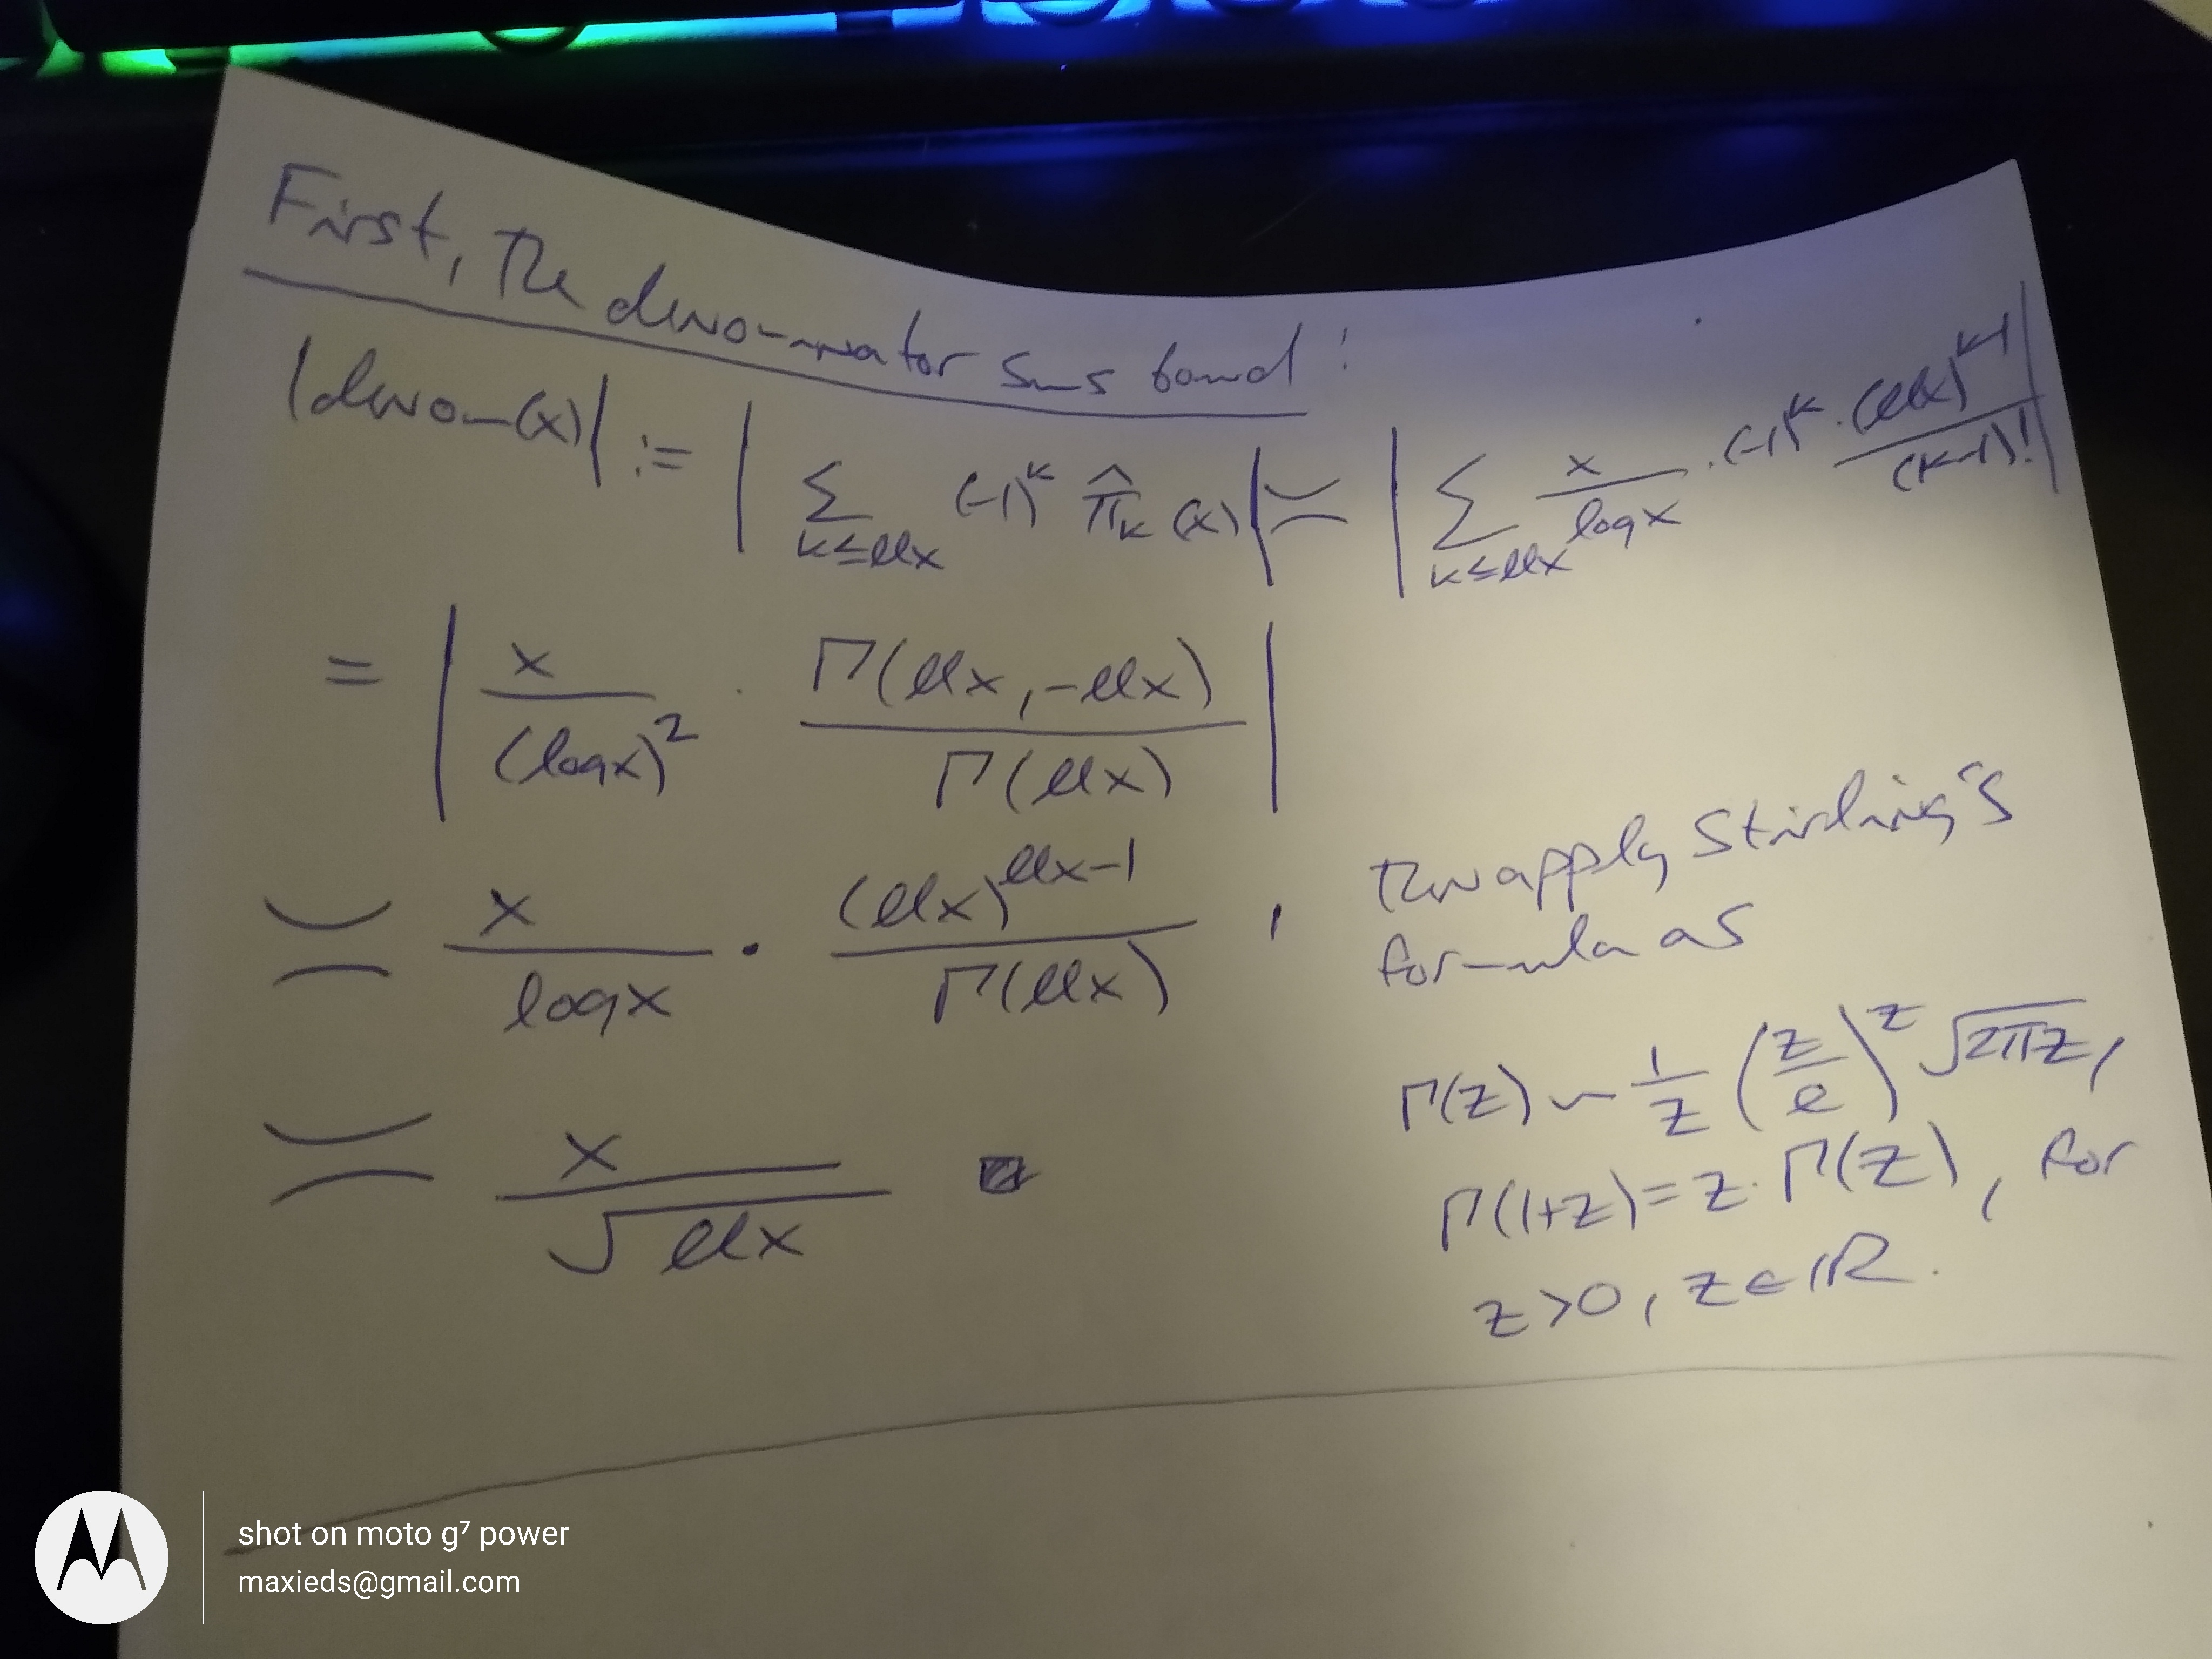 First, the denominator sums bound:
|denom(x)| := | ∑_{k≤llx} (-1)^k π̂_k(x) | ≍ | ∑_{k≤llx} x/log x · (-1)^k · (llx)^{k-1}/(k-1)! |
= | x/(log x)^2 · Γ(llx, -llx)/Γ(llx) |
≍ x/log x · (llx)^{llx-1}/Γ(llx) , then apply Stirling's
formula as
Γ(z) ~ 1/z (z/e)^z √(2πz),
Γ(1+z) = z·Γ(z), for
z>0, z∈ℝ.
≍ x/√(llx)
shot on moto g⁷ power
maxieds@gmail.com